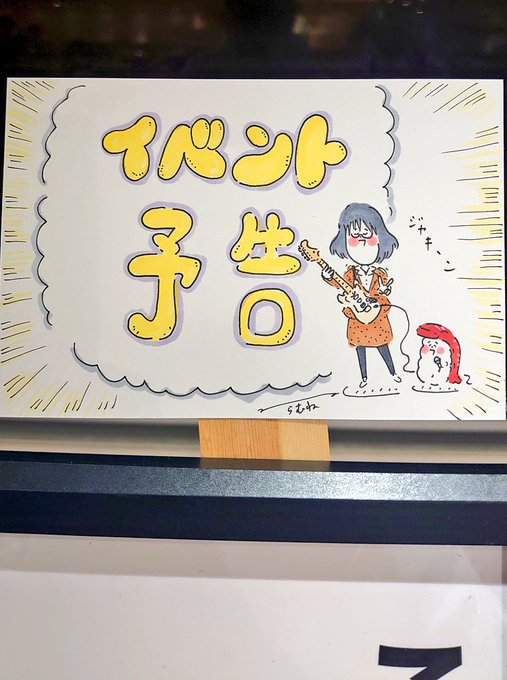 イベント
予告
ジャキーン
らむね